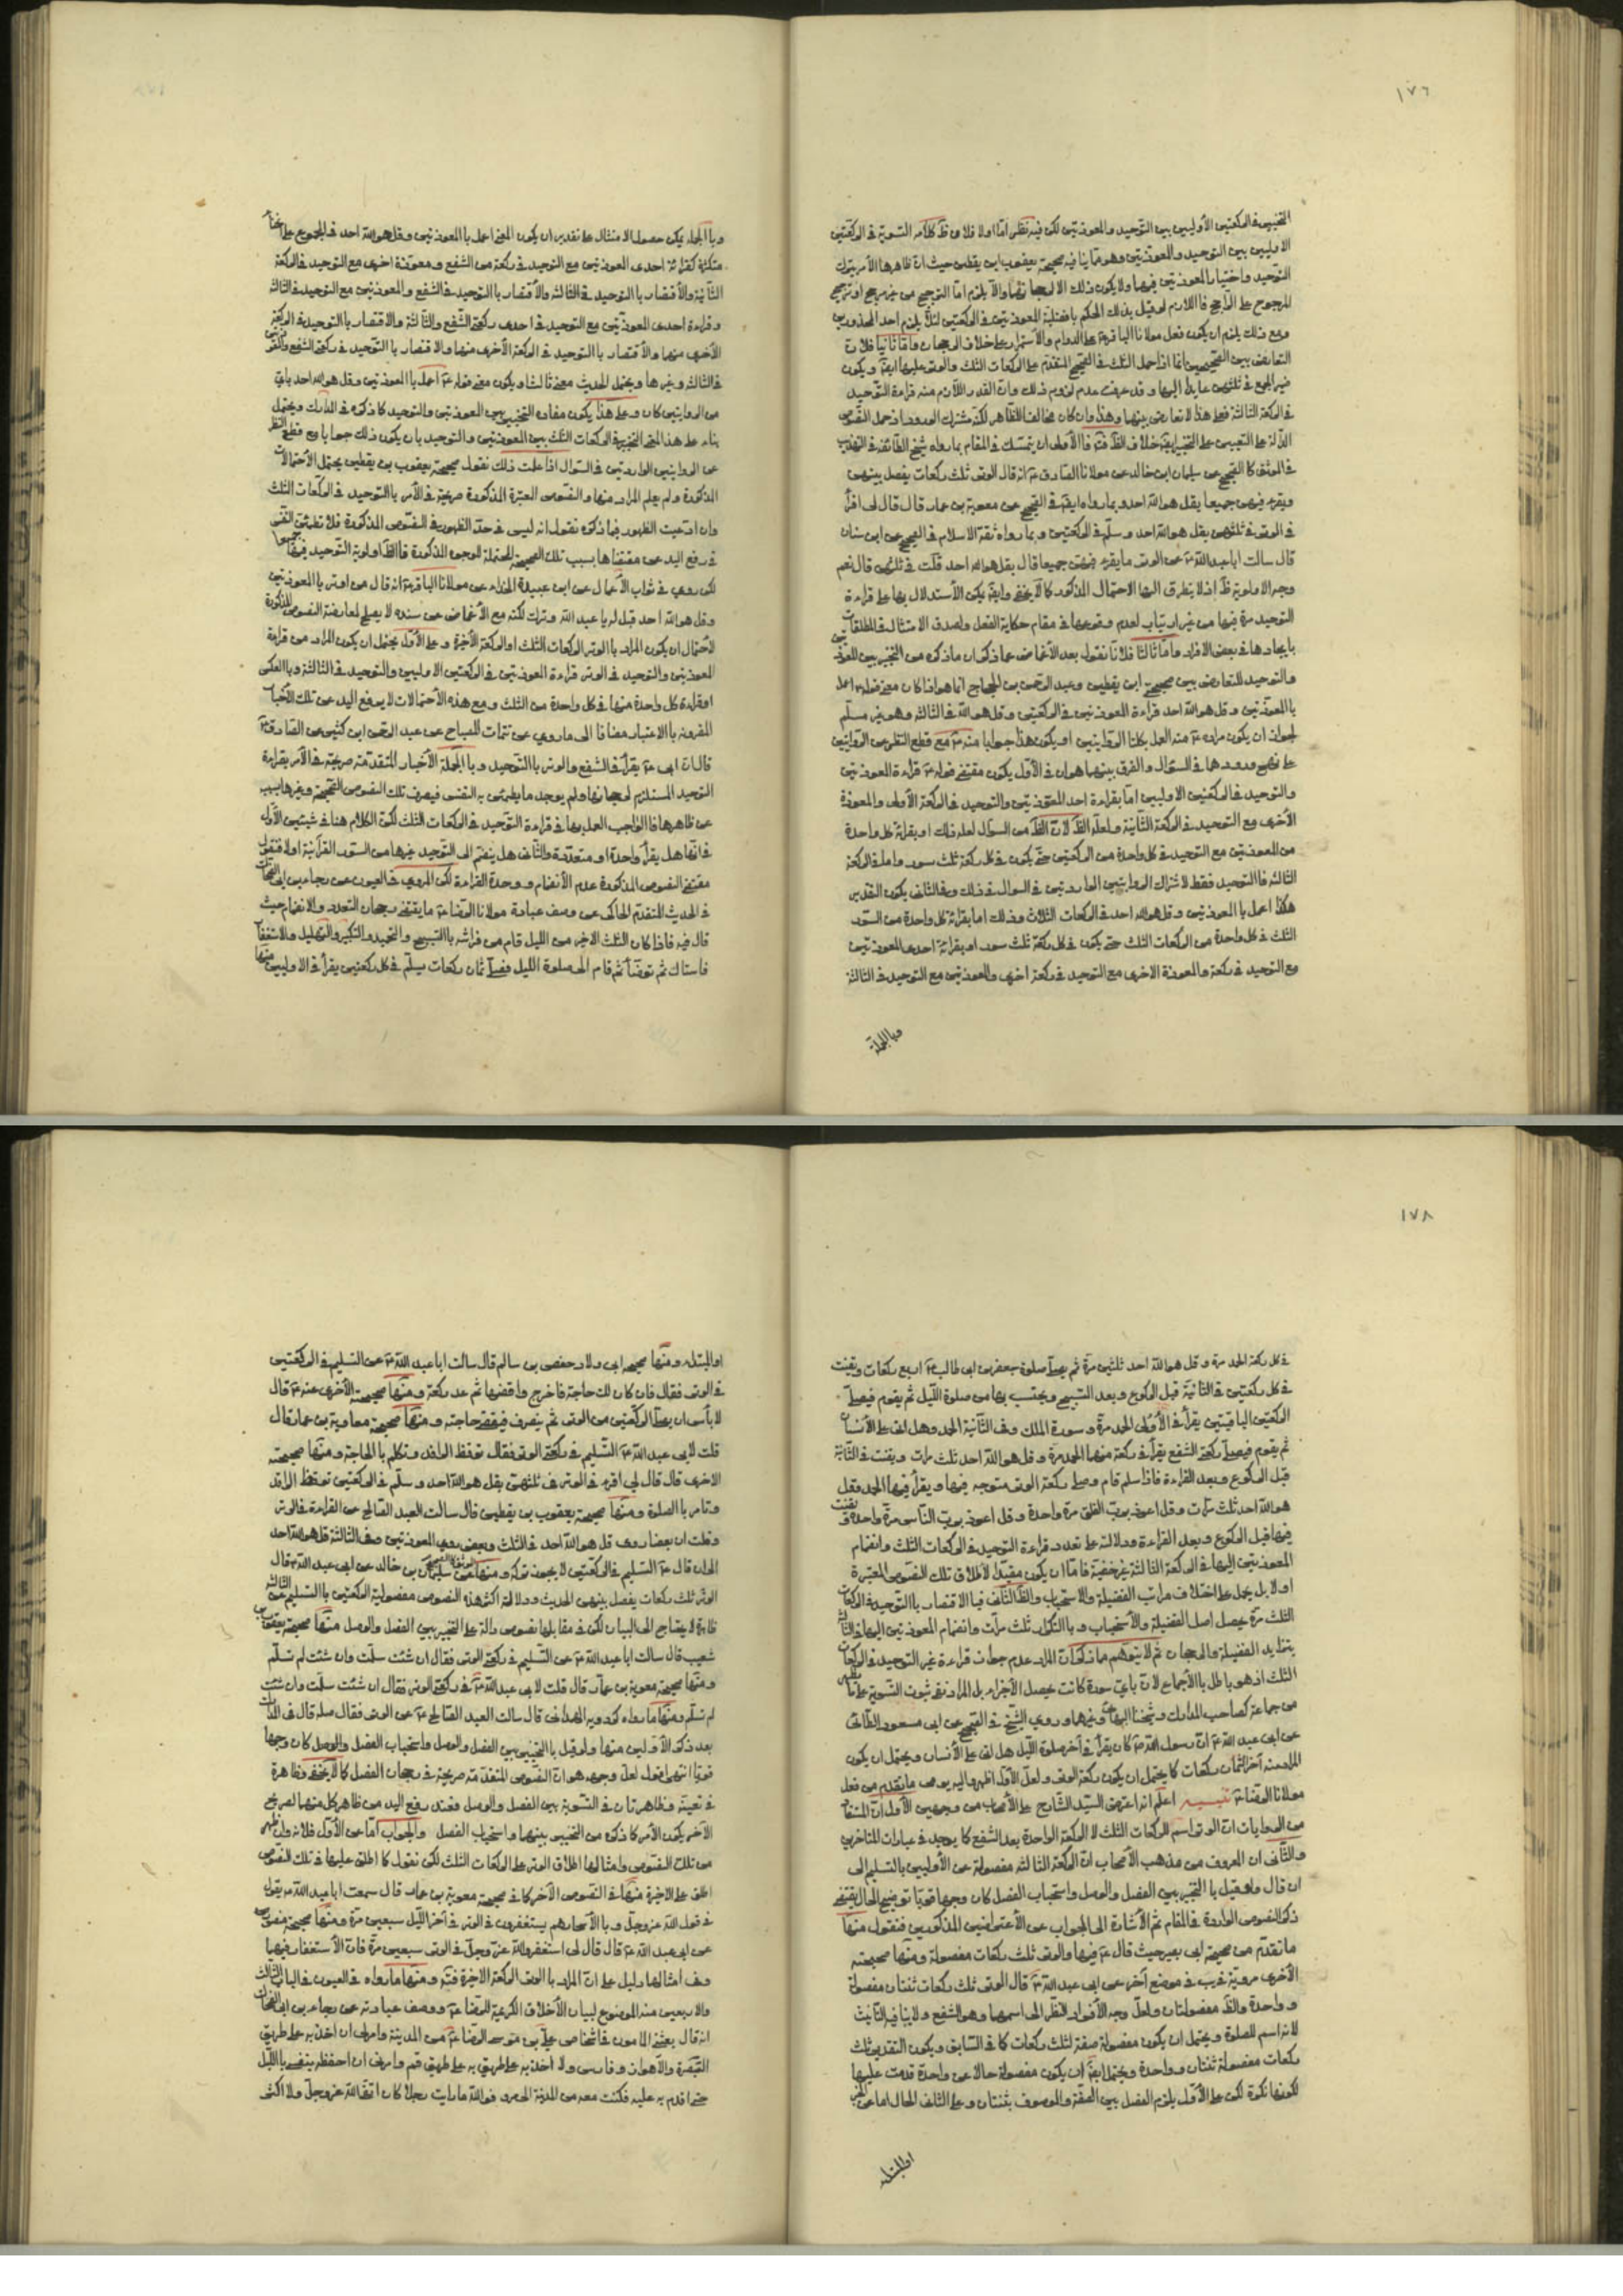 ١٧٦
التخيير في الركعتين الأوليين بين التوحيد والمعوذتين لكن فيه نظر امّا اولا فلان ظ كلامه التسوية في الركعتين
الاوليين بين التوحيد والمعوذتين وهو مما ينافيه صحيحة يعقوب ابن يقطين حيث ان ظاهرها الأمر بترك
التوحيد واختيار المعوذتين فيهما ولا يكون ذلك الا لرجحانهما والّا يلزم امّا الترجيح من غير مرجح او ترجيح
المرجوح على الراجح فاللازم لو قيل بذلك الحكم بافضلية المعوذتين في الركعتين لئلّا يلزم احد المحذورين
ومع ذلك يلزم ان يكون فعل مولانا الباقر ع على الدوام والاستمرار على خلاف الرجحان وامّا ثانيا فلان
التعارض بين الصحيحين انما اذا حمل الثلث في الصحيح المتقدم على الركعات الثلث والوتر عليها ايضا ويكون
ضمير الجمع في ثلثهن عايدا اليها وقد عرفت عدم لزوم ذلك وان القدر اللازم منه قراءة التوحيد
في الركعة الثالثة فعلى هذا لا تعارض بينهما وهذا وان كان مخالفا للظاهر لكنه مشترك الورود اذ حمل النصوص
الدالة على التعيين على التخيير ايضا خلاف الظ فت فالأولى ان يتمسك في المقام بما رواه شيخ الطائفة في التهذيب
في الموثق كالصحيح عن سليمان ابن خالد عن مولانا الصادق ع انه قال الوتر ثلث ركعات يفصل بينهن
ويقرء فيهن جميعا بقل هو الله احد وبما رواه ايضا في الصحيح عن معوية بن عمار قال قال لي اقرأ
في الوتر في ثلثهن بقل هو الله احد وسلّم في الركعتين وبما رواه ثقة الاسلام في الصحيح عن ابن سنان
قال سالت ابا عبد الله ع عن الوتر ما يقرء فيهن جميعا قال بقل هو الله احد قلت في ثلثهن قال نعم
وجه الاولوية ظ اذ لا يتطرق اليها الاحتمال المذكور كما لا يخفى وايضا يمكن الأستدلال بها على قراءة
التوحيد مرة فيها من غير ارتياب لعدم وقوعها في مقام حكاية الفعل ولصدق الامتثال في المطلقات
بايجادها في بعض الافراد وامّا ثالثا فلانا نقول بعد الأغماض عما ذكر ان ما ذكره من التخيير بين المعوذتين
والتوحيد للتعارض بين صحيحتى ابن يقطين وعبد الرحمن بن الحجاج انما هو اذا كان معنى قوله ع اعمل
بالمعوذتين وقل هو الله احد قراءة المعوذتين في الركعتين وقل هو الله في الثالثة وهو غير مسلّم
لجواز ان يكون مراده ع منه العمل بكلتا الروايتين او يكون هذا جوابا منه ع مع قطع النظر عن الروايتين
والتوحيد في الركعتين الاوليين امّا بقراءة احد المعوذتين والتوحيد في الركعة الأولى والمعوذة
الأخرى مع التوحيد في الركعة الثانية ولعله الظ لان الظ من السؤال لعله ذلك او بقرائة كل واحدة
من المعوذتين مع التوحيد في كل واحدة من الركعتين حتى يكون في كل ركعة ثلث سور واما في الركعة
الثالثة فالتوحيد فقط لاشتراك الروايتين الواردتين في السؤال في ذلك وفي الثاني يكون التقدير
هكذا اعمل بالمعوذتين وقل هو الله احد في الركعات الثلاث وذلك اما بقرائة كل واحدة من السّور
الثلث في كل واحدة من الركعات الثلث حتى يكون في كل ركعة ثلث سور او بقرائة احدى المعوذتين
مع التوحيد في ركعة والمعوذة الاخرى مع التوحيد في ركعة اخرى والمعوذتين مع التوحيد في الثالثة
وبالجملة
وبالجملة يمكن حصول الامتثال على تقدير ان يكون المعنى اعمل بالمعوذتين وقل هو الله احد في المجموع على انحاء
متكثرة كقرائة احدى المعوذتين مع التوحيد في ركعة من الشفع ومعوذة اخرى مع التوحيد في الركعة
الثانية والأقتصار بالتوحيد في الثالثة والأقتصار بالتوحيد في الشفع والمعوذتين مع التوحيد في الثالثة
وقراءة احدى المعوذتين مع التوحيد في احدى ركعتى الشفع والثالثة والاقتصار بالتوحيد في الركعة
الأخرى منهما والأقتصار بالتوحيد في الركعة الأخرى منهما والاقتصار بالتوحيد في ركعتى الشفع والمعوذتين
في الثالثة وغيرها ويحتمل الحديث معنى ثالثا ويكون معنى قوله ع اعمل بالمعوذتين وقل هو الله احد باي
من الروايتين كان وعلى هذا يكون مفاده التخيير بين المعوذتين والتوحيد كما ذكره في المدارك ويحتمل
بناء على هذا المعنى التخيير في الركعات الثلث بين المعوذتين والتوحيد بان يكون ذلك جوابا مع قطع النظر
عن الروايتين الواردتين في السؤال اذا علمت ذلك نقول صحيحة يعقوب بن يقطين يحتمل الأحتمالات
المذكورة ولم يعلم المراد منها والنصوص المعتبرة المذكورة صريحة في الأمر بالتوحيد في الركعات الثلث
وان ادعيت الظهور فيما ذكروه نقول انه ليس في حدّ الظهور في النصوص المذكورة فلا تطمئن النفس
في رفع اليد عن مقتضاها بسبب تلك الصحيحة المحتملة للوجوه المذكورة فالظ اولوية التوحيد فيها جميعا
لكن روي في ثواب الأعمال عن ابي عبيدة الحذاء عن مولانا الباقر ع انه قال من اوتر بالمعوذتين
وقل هو الله احد قيل له يا عبد الله وترك لكنه مع الأغماض عن سنده لا يصلح لمعارضة النصوص المذكورة
لأحتمال ان يكون المراد بالوتر الركعات الثلث او الركعة الأخيرة وعلى الأول يحتمل ان يكون المراد من قراءة
المعوذتين والتوحيد في الوتر قراءة المعوذتين في الركعتين الاوليين والتوحيد في الثالثة وبالعكس
او قراءة كل واحدة منها في كل واحدة من الثلث ومع هذه الأحتمالات لا يرفع اليد عن تلك الأخبار
المقرونة بالاعتبار مضافا الى ما روي عن تتمات المصباح عن عبد الرحمن ابن كثير عن الصادق ع
قال ان ابي ع يقرأ في الشفع والوتر بالتوحيد وبالجملة الأخبار المتقدمة صريحة في الأمر بقراءة
التوحيد المستلزم لرجحانها ولم يوجد ما يطمئن به النفس فيصرف تلك النصوص الصحيحة وغيرها بسببه
عن ظاهرها فالواجب العمل بها في قراءة التوحيد في الركعات الثلث لكن الكلام هنا في شيئين الأول
في انها هل يقرأ واحدة او متعددة والثاني هل ينضم الى التوحيد غيرها من السور القرآنية اولا فنقول
مقتضى النصوص المذكورة عدم الأنضمام ووحدة القراءة لكن المروي في العيون عن رجاء بن ابي الضحاك
في الحديث المتقدم الحاكي عن وصف عبادة مولانا الرضا ع ما يقتضي رجحان التعدد والانضمام حيث
قال فيه فاذا كان الثلث الاخر من الليل قام من فراشه بالتسبيح والتحميد والتكبير والتهليل والاستغفار
فاستاك ثم توضأ ثم قام الى صلوة الليل فصلّى ثمان ركعات يسلّم في كل ركعتين يقرأ في الاوليين منها
١٧٨
في كل ركعة الحمد مرة وقل هو الله احد ثلثين مرّة ثم يصلّي صلوة جعفر بن ابي طالب ع اربع ركعات ويقنت
في كل ركعتين في الثانية قبل الركوع وبعد التسبيح ويحتسب بها من صلوة الليل ثم يقوم فيصلّي
الركعتين الباقيتين يقرأ في الأولى الحمد مرة وسورة الملك وفي الثانية الحمد وهل اتى على الأنسان
ثم يقوم فيصلّي ركعتى الشفع يقرأ في ركعة منهما الحمد مرة وقل هو الله احد ثلث مرات ويقنت في الثانية
قبل الركوع وبعد القراءة فاذا سلم قام وصلى ركعة الوتر متوجه فيها ويقرأ فيها الحمد وقل
هو الله احد ثلث مرات وقل اعوذ برب الفلق مرة واحدة وقل اعوذ برب الناس مرة واحدة ويقنت
فيها قبل الركوع وبعد القراءة ودلالته على تعدد قراءة التوحيد في الركعات الثلث وانضمام
المعوذتين اليها في الركعة الثالثة غير خفية فامّا ان يكون مقيدا لأطلاق تلك النصوص المعتبرة
اولا بل يحمل على اختلاف مراتب الفضيلة والاستحباب والظ الثاني فبالاقتصار بالتوحيد في الركعات
الثلث مرّة يحصل اصل الفضيلة والأستحباب وبالتكرار ثلث مرات وانضمام المعوذتين اليها في الثالثة
يتزايد الفضيلة والرجحان ثم لا يتوهم مما ذكر ان المراد عدم جواز قراءة غير التوحيد في الركعات
الثلث اذ هو باطل بالأجماع لان باي سورة كانت يحصل الأجزاء بل المراد نفي ثبوت التسوية على ما يظهر
من جماعة كصاحب المدارك وشيخنا البهائي وغيرهما وروي الشيخ في الصحيح عن ابي مسعود الطائي
عن ابي عبد الله ع ان رسول الله ص كان يقرأ في آخر صلوة الليل هل اتى على الأنسان ويحتمل ان يكون
المراد منه آخر الثمان ركعات كما يحتمل ان يكون ركعة الوتر ولعلّ الأول اظهر واليه يومي ما يتقدم من فعل
مولانا الرضا ع تنبيه اعلم انه اعترض السيّد الشارح على الأصحاب من وجهين الأول ان المستفاد
من الروايات ان الوتر اسم للركعات الثلث لا الركعة الواحدة بعد الشفع كما يوجد في عبارات المتاخرين
والثاني ان المعروف من مذهب الأصحاب ان الركعة الثالثة مفصولة عن الأوليين بالتسليم الى
ان قال ولو قيل بالتخيير بين الفصل والوصل واستحباب الفصل كان وجها قويا توضيح الحال يقتضى
ذكر النصوص الواردة في المقام ثم الأشارة الى الجواب عن الأعتراضين المذكورين فنقول منها
ما تقدم من صحيحة ابي بصير حيث قال ع فيها والوتر ثلث ركعات مفصولة ومنها صحيحته
الأخرى مروية في يب في موضع آخر عن ابي عبد الله ع قال الوتر ثلث ركعات ثنتان مفصولة
وواحدة والظ مفصولتان ولعل وجه الأفراد النظر الى اسمهما وهو الشفع ولا ينافيه التأنيث
لانه اسم للصلوة ويحتمل ان يكون مفصولة صفة لثلث ركعات كما في السابق ويكون التقدير ثلث
ركعات مفصولة ثنتان وواحدة ويحتمل ايضا ان يكون مفصولة حالا عن واحدة قدمت عليها
لكونها نكرة لكن على الأول يلزم الفصل بين الصفة والموصوف بثنتان وعلى الثاني الحال اما عن الخبر
او المبتدأ
او المبتدأ ومنها صحيحة ابي ولاد حفص بن سالم قال سالت ابا عبد الله ع عن التسليم في الركعتين
في الوتر فقال فان كان لك حاجة فاخرج واقضها ثم عد ركعة ومنها صحيحته الأخرى عنه ع قال
لا بأس ان يصلّي الركعتين من الوتر ثم ينصرف فيقضي حاجته ومنها صحيحة معاوية بن عمار قال
قلت لابي عبد الله ع التسليم في ركعتى الوتر فقال توقظ الراقد وتكلم بالحاجة ومنها صحيحته
الاخرى قال قال لي اقرء في الوتر في ثلثهن بقل هو الله احد وسلّم في الركعتين توقظ الراقد
وتامر بالصلوة ومنها صحيحة يعقوب بن يقطين قال سالت العبد الصالح عن القراءة في الوتر
وقلت ان بعضا روى قل هو الله احد في الثلث وبعض روى المعوذتين وفي الثالثة قل هو الله احد
الى ان قال ع التسليم في الركعتين لا يجوز تركه ومنها موثقة سليمان بن خالد عن ابي عبد الله ع قال
الوتر ثلث ركعات يفصل بينهن الحديث ودلالة اكثر هذه النصوص مفصولية الركعتين بالتسليم عن الثالثة
ظاهرة لا يحتاج الى البيان لكن في مقابلها نصوص دالة على التخيير بين الفصل والوصل منها صحيحة يعقوب بن
شعيب قال سالت ابا عبد الله ع عن التسليم في ركعتى الوتر فقال ان شئت سلّمت وان شئت لم تسلّم
ومنها صحيحة معوية بن عمار قال قلت لابي عبد الله ع في ركعتى الوتر فقال ان شئت سلّمت وان شئت
لم تسلّم ومنها ما رواه كردويه الهمداني قال سالت العبد الصالح ع عن الوتر فقال صله قال في المدارك
بعد ذكر الأولين منها ولو قيل بالتخيير بين الفصل والوصل واستحباب الفصل والوصل كان وجها
قويا انتهى اقول لعل وجهه هو ان النصوص المتقدمة صريحة في رجحان الفصل كما لا يخفى وظاهرة
في تعينه وظاهرتان في التسوية بين الفصل والوصل فعند رفع اليد من ظاهر كل منهما لصريح
الآخر يكون الأمر كما ذكره من التخيير بينهما واستحباب الفصل والجواب امّا عن الأول فلانه وان ظهر
من تلك النصوص وامثالها اطلاق الوتر على الركعات الثلث لكن نقول كما اطلق عليها في تلك النصوص
اطلق على الاخيرة منها في النصوص الآخر كما في صحيحة معوية بن عمار قال سمعت ابا عبد الله ع يقول
في قول الله عز وجل وبالأسحار هم يستغفرون في الوتر في آخر الليل سبعين مرة ومنها صحيحة منصور
عن ابي عبد الله ع قال قال لي استغفر الله عز وجل في الوتر سبعين مرّة فان الأستغفار فيها
وفي امثالها دليل على ان المراد بالوتر الركعة الاخيرة فت ومنها ما رواه في العيون في الباب الثالث
والاربعين منه الموضوع لبيان الأخلاق الكريمة للرضا ع ووصف عبادته عن رجاء بن ابي الضحاك
انه قال بعثني المامون في اشخاص علي بن موسى الرضا ع من المدينة وامرني ان آخذ به على طريق
البصرة والأهواز وفارس ولا آخذ به على طريق قم وامرني ان احفظه بنفسي بالليل
حتى اقدم به عليه فكنت معه من المدينة الى مرو فو الله ما رايت رجلا كان اتقى الله عز وجل ولا اكثر